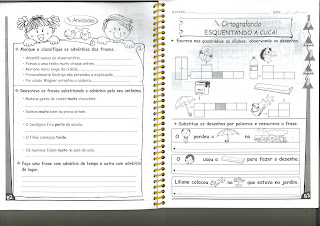 Atividades
Marque e classifique os advérbios das frases.
Amanhã vamos ao observatório.
Fomos a uma festa muito chique ontem.
Mariana mora longe da cidade.
Provavelmente Rodrigo não entendeu a explicação.
Reescreva as frases substituindo o advérbio pelo seu antônimo.
Mateus gosta de comer muito chocolate.
O zoológico fica perto da escola.
O filme começou tarde.
Os meninos falam muito na sala de aula.
Faça uma frase com advérbio de tempo e outra com advérbio de lugar.
Ortografando
ESQUENTANDO A CUCA!
Escreva nos quadrinhos as sílabas, observando os desenhos.
Substitua os desenhos por palavras e reescreva a frase.
O perdeu o na
O usou a para fazer o desenho.
Liliane colocou na que estava no jardim.